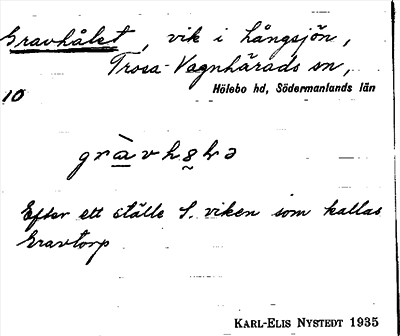 Gravhålet, vik i Långsjön,
Trosa-Vagnhärads sn,
Hölebo hd, Södermanlands län
10
Efter ett ställe S. viken som kallas
Gravtorp
KARL-ELIS NYSTEDT 1935